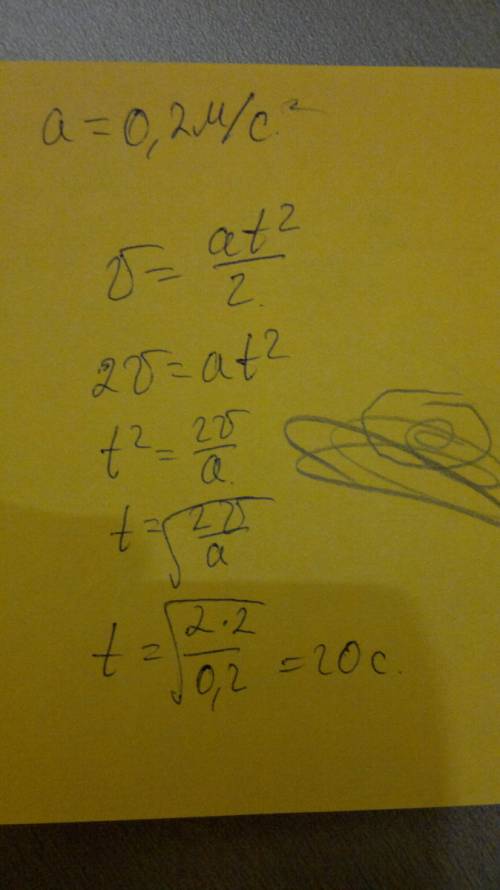 a = 0,2 м/с²
υ = at²/2.
2υ = at²
t² = 2υ/a.
t = √(2υ/a)
t = √(2·2/0,2) = 20 с.